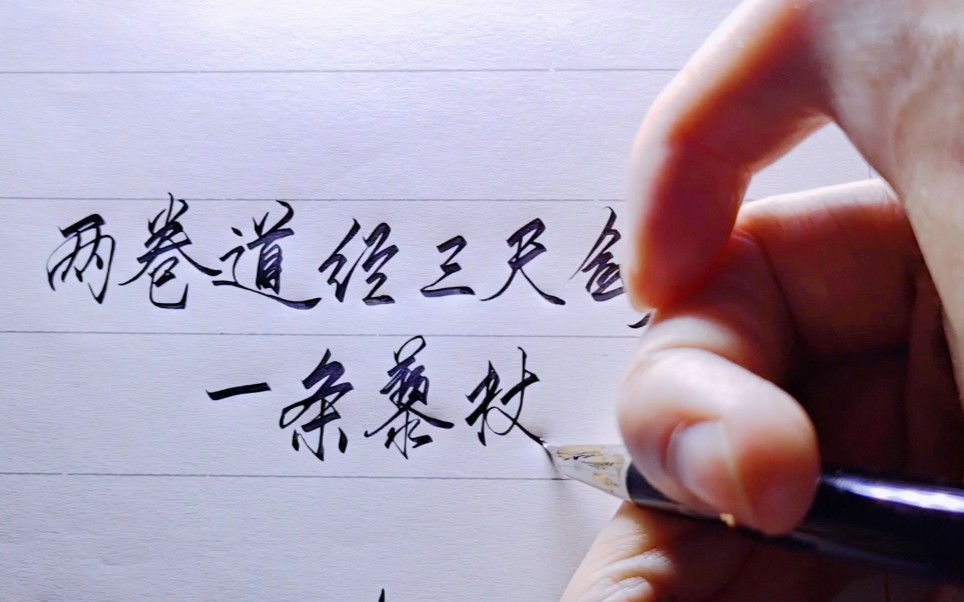 两卷道经三尺剑
一条藜杖